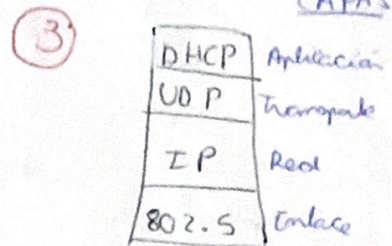 CAPAS
3
DHCP Aplicación
UDP Transporte
IP Red
802.5 Enlace